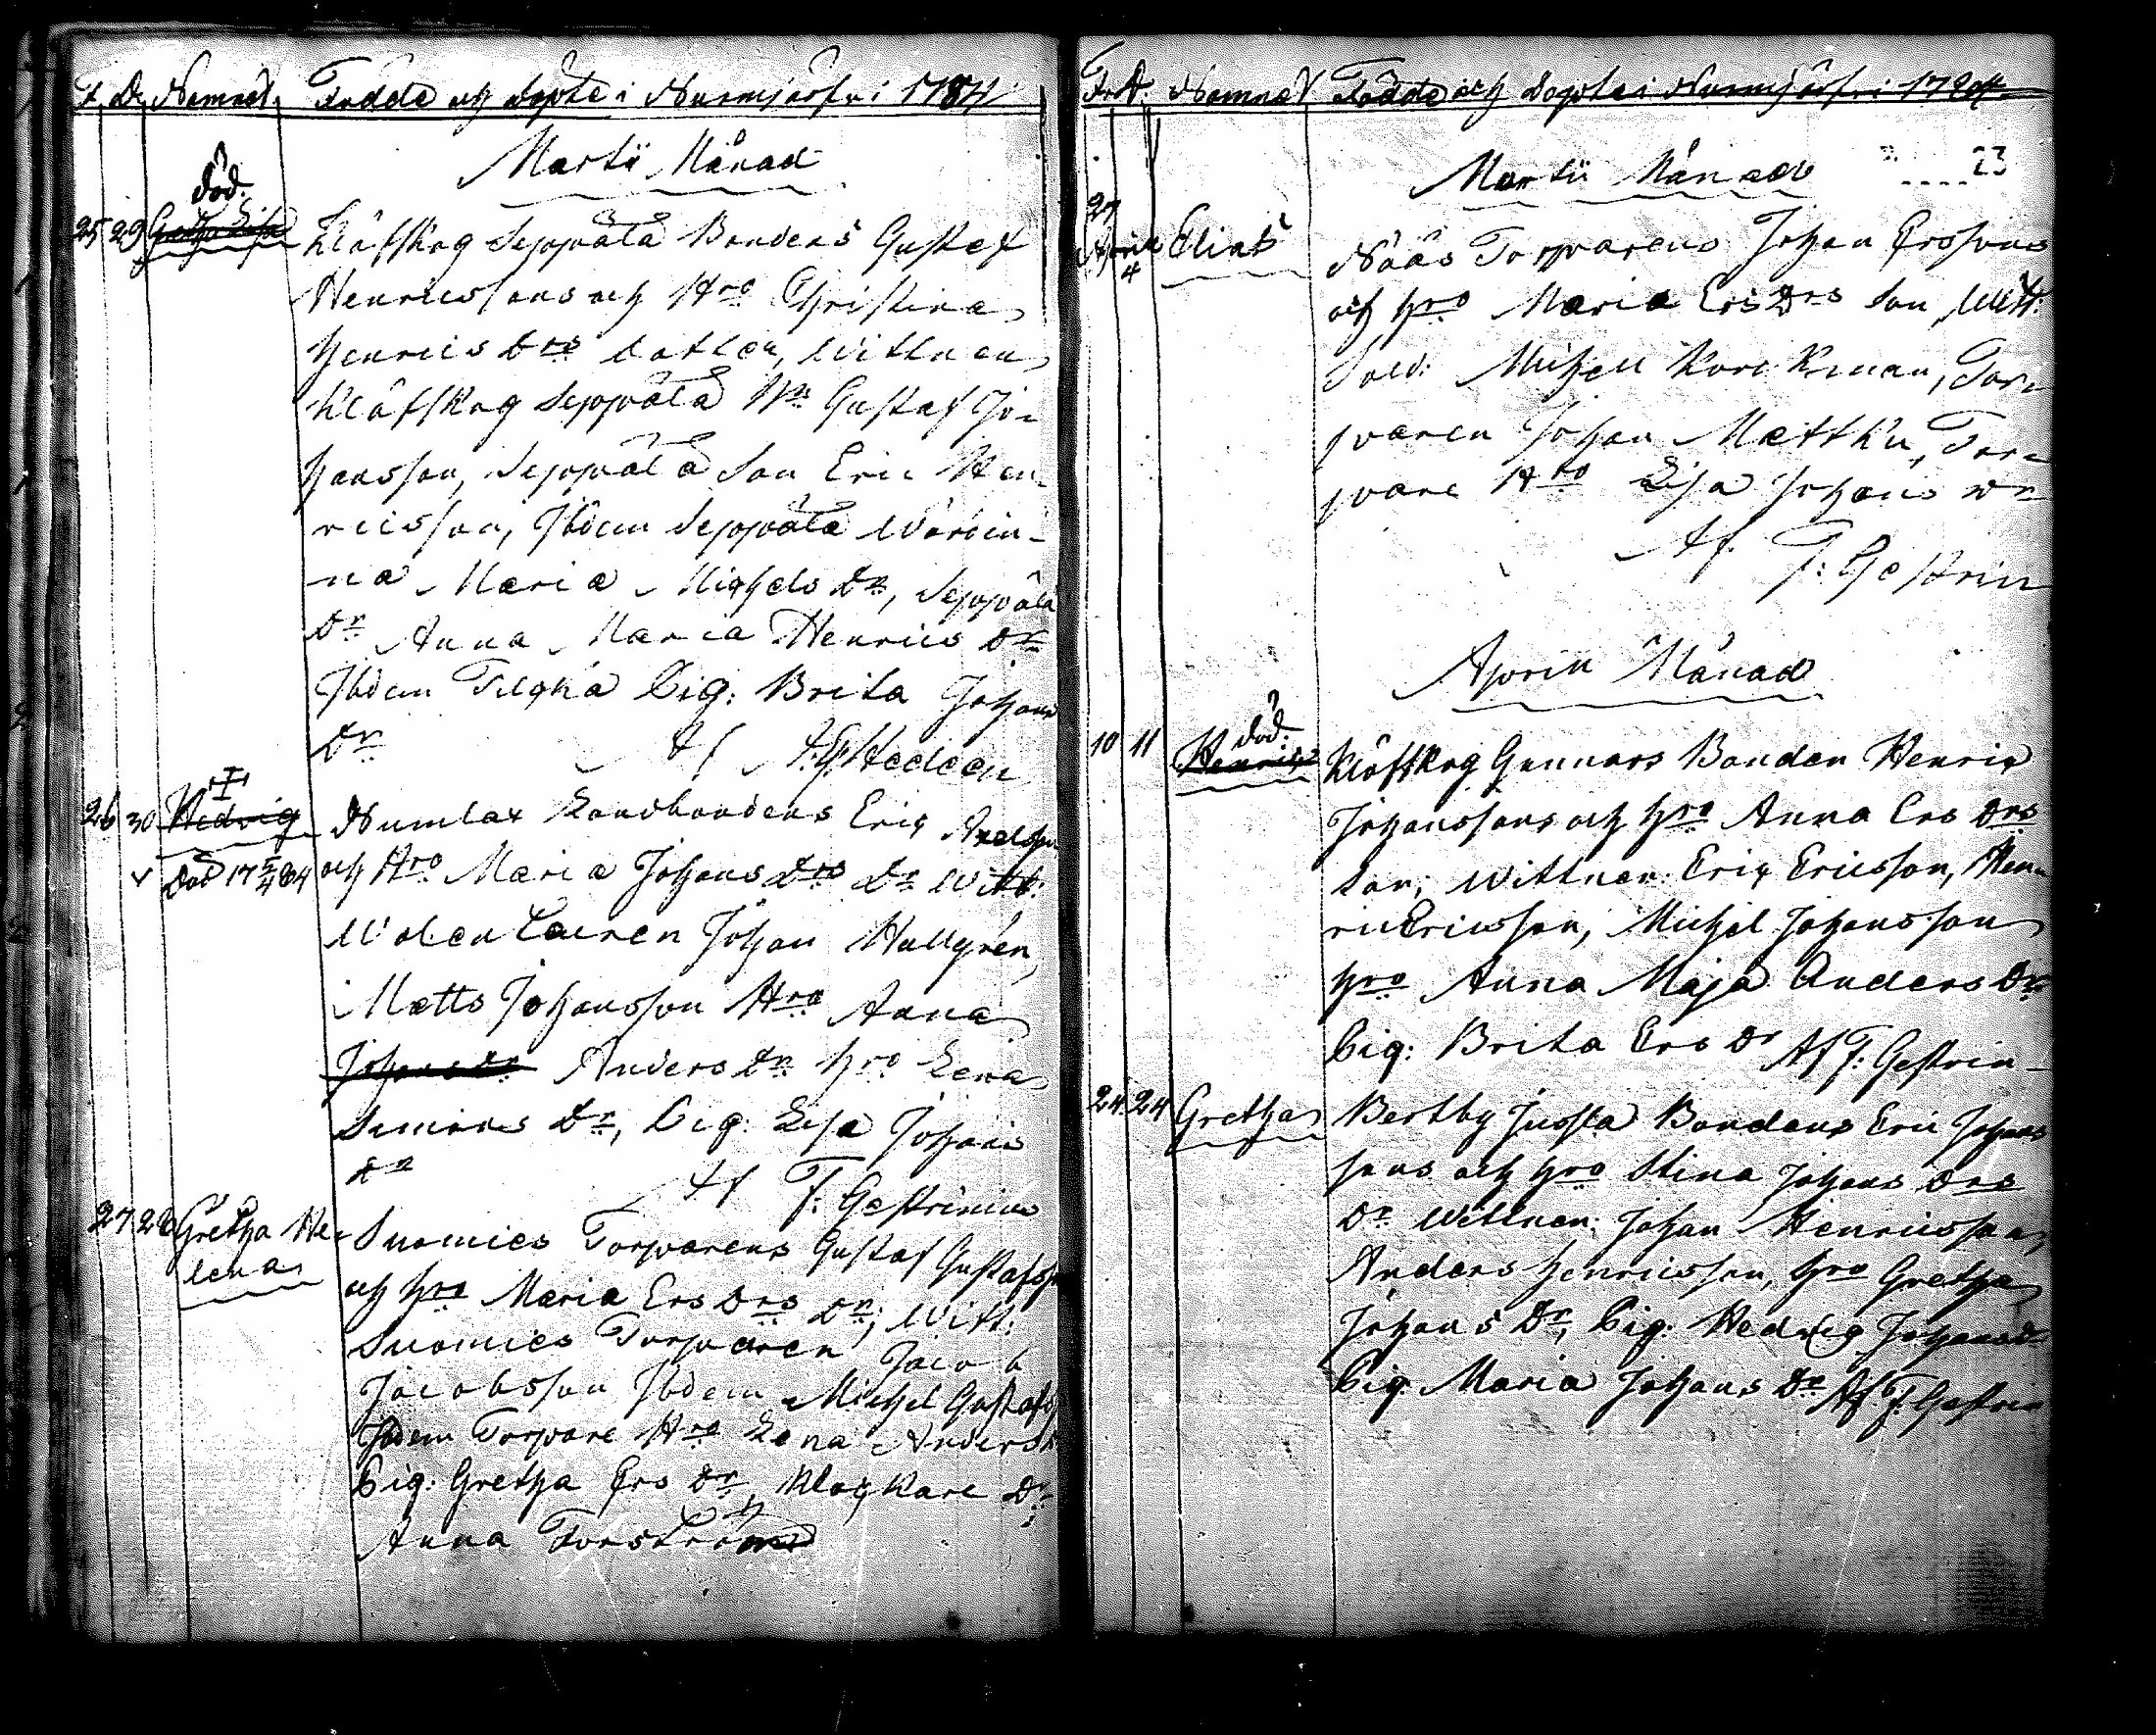 F. D. Namnet, Födde och Döpte i Nurmijärfvi 1784
Martii Månad
död.
25 29 Gretha Lisa Klöfskog Seppälä Bondens Gustaf
Henricssons och Hro Christina
Henrics Drs dotter, Wittnen
Klöfskog Seppälä Gustaf Jo-
hansson, Seppälä Son Eric Hen-
ricsson, Ibdem Seppälä Wärdin-
na Maria Michels Dr, Seppälä
Dr Anna Maria Henrics Dr
Ibdem Pig: Brita Johans
Dr Af Hedeen
26 30 Hedvig Numlax Landbondens Eric Axelsson
Död 17 5/4 84 och Hro Maria Johans Drs Dr Witt:
Johan Hallgrén,
Matts Johansson Hro Anna
Johans Dr Anders Dr Hro Lena
Simons Dr, Pig: Lisa Johans
Dr Af F: Gestrinius
27 28 Gretha He- Suomies Torparens Gustaf Gustafsson
lena och Hro Maria Ers Drs Dr, Witt:
Suomies Torparen Jacob
Jacobsson Ibdem Michel Gustafs
Ibdem Torpare Hro Lena Anders Dr
Pig: Gretha Ers Dr, Klockare Dr
Anna Forström
F. D. Namnet Födde och Döpte i Nurmijärfvi 1784
23
Martii Månad
27
April 4 Elias Nääs Torparens Johan Erssons
och Hro Maria Ers Drs Son, Witt:
Sold: Michell Torp-
paren Johan Matthn, Torp-
pare Hro Lisa Johans Dr
Af F: Gestrin
April Månad
död.
10 11 Henric Klöfskog Gunnars Bonden Henric
Johanssons och Hro Anna Ers Drs
Son; Wittnen: Eric Ericsson, Hen-
ric Ericsson, Michel Johansson
Hro Anna Maja Anders Dr
Pig: Brita Ers Dr Af F: Gestrin
24 24 Gretha Bertby Jussla Bondens Eric Johans
sons och Hro Stina Johans Drs
Dr Wittnen: Johan Henricsson,
Anders Henricsson, Hro Gretha
Johans Dr, Pig: Hedvig Johans Dr
Pig: Maria Johans Dr Af F: Gestrin